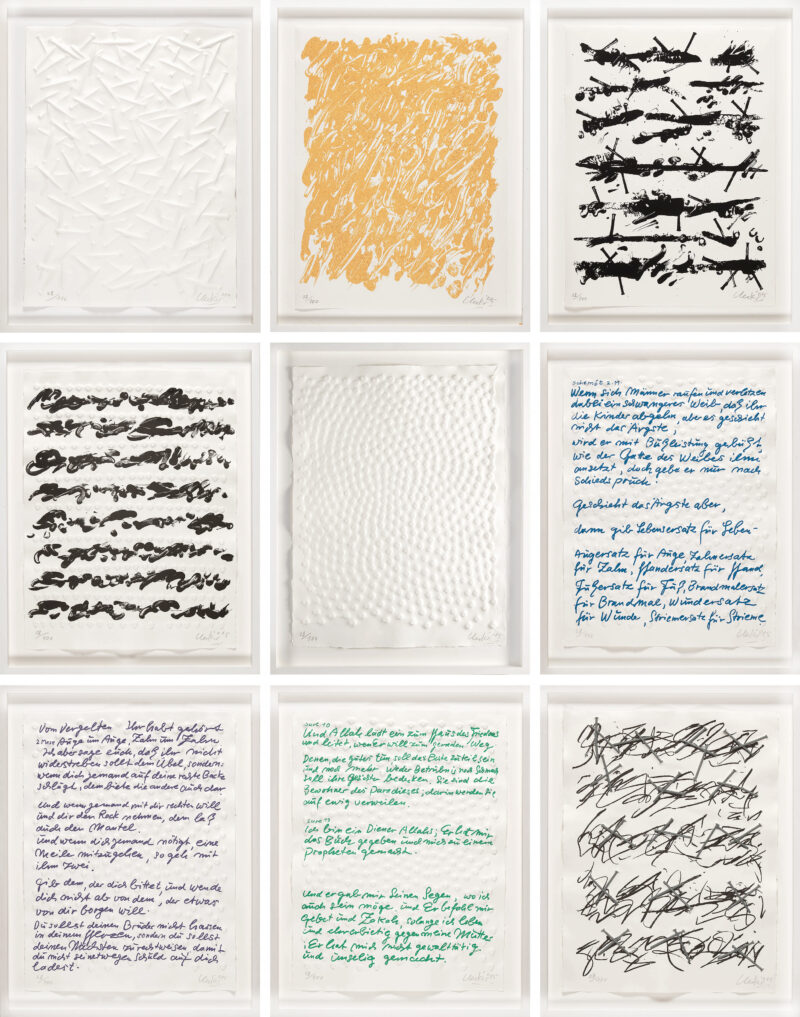 Uecker 04
Uecker 04
Uecker 04
Uecker 05
Uecker
Schemot 2. M
Wenn sich Männer raufen und verletzen
dabei ein schwangeres Weib, daß ihr
die Kinder abgehn, aber es geschieht
nicht das Ärgste,
wird er mit Bußleistung gebüßt,
wie der Gatte des Weibes ihm
ansetzt, doch gebe er nur nach
Schiedspruch.
Geschieht das Ärgste aber,
dann gib Lebensersatz für Leben–
Augersatz für Auge Zahnersatz
für Zahn, Handersatz für Hand,
Fußersatz für Fuß, Brandmalersatz
für Brandmal, Wundersatz
für Wunde, Striemersatz für Strieme
Uecker 05
Vom Vergelten Ihr habt gehört
Auge um Auge Zahn um Zahn
Ich aber sage euch, daß ihr nicht
widerstreben sollt dem Übel, sondern:
wenn dich jemand auf deine rechte Backe
schlägt, dem biete die andere auch dar
Und wenn jemand mit dir rechten will
und dir den Rock nehmen, dem laß
auch den Mantel.
Und wenn dich jemand nötigt eine
Meile mitzugehen, so geh' mit
ihm zwei.
Gib dem, der dich bittet, und wende
dich nicht ab von dem, der etwas
von dir borgen will
Du sollst deinen Bruder nicht hassen
in deinem Herzen, sondern du sollst
deinen Nächsten zurechtweisen damit
du nicht seinetwegen Schuld auf dich
ladest.
Uecker
Sure 10
Und Allah lädt ein zum Haus des Friedens
und leitet, wen er will zum geraden Weg
Denen, die gutes tun soll das Beste zuteil sein
und noch mehr. Weder Betrübnis noch Schmach
soll ihre Gesichter bedecken. Sie sind die
Bewohner des Paradieses; darin werden sie
auf ewig verweilen.
Sure 19
Ich bin ein Diener Allahs; Er hat mir
das Buch gegeben und mich zu einem
Propheten gemacht.
Und er gab mir Seinen Segen, wo ich
auch sein möge und Er befahl mir
Gebet und Zakah, solange ich lebe
und ehrerbietig gegen meine Mutter
Er hat mich nicht gewalttätig
und unselig gemacht.
Uecker 05
Uecker